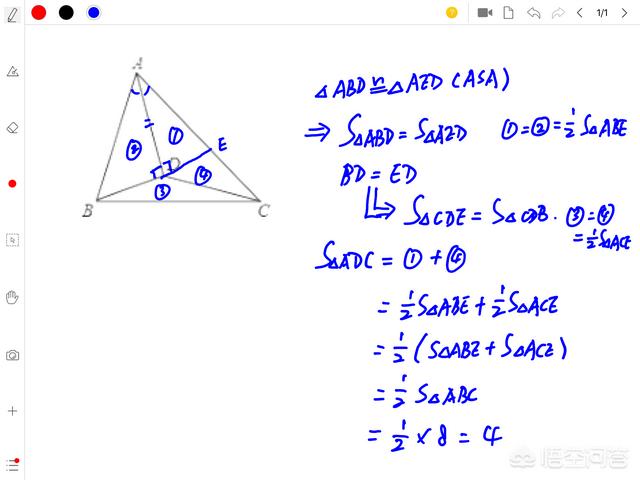 1/1
A
②
①
E
D
④
③
B
C
△ABD≌△AED (ASA)
⇒ S△ABD = S△AED ①=②=½S△ABE
BD = ED
⇒ S△CDE = S△CDB. ③=④
=½S△ACE
S△ADC = ① + ④
= ½S△ABE + ½S△ACE
= ½(S△ABE + S△ACE)
= ½ S△ABC
= ½ × 8 = 4
悟空问答